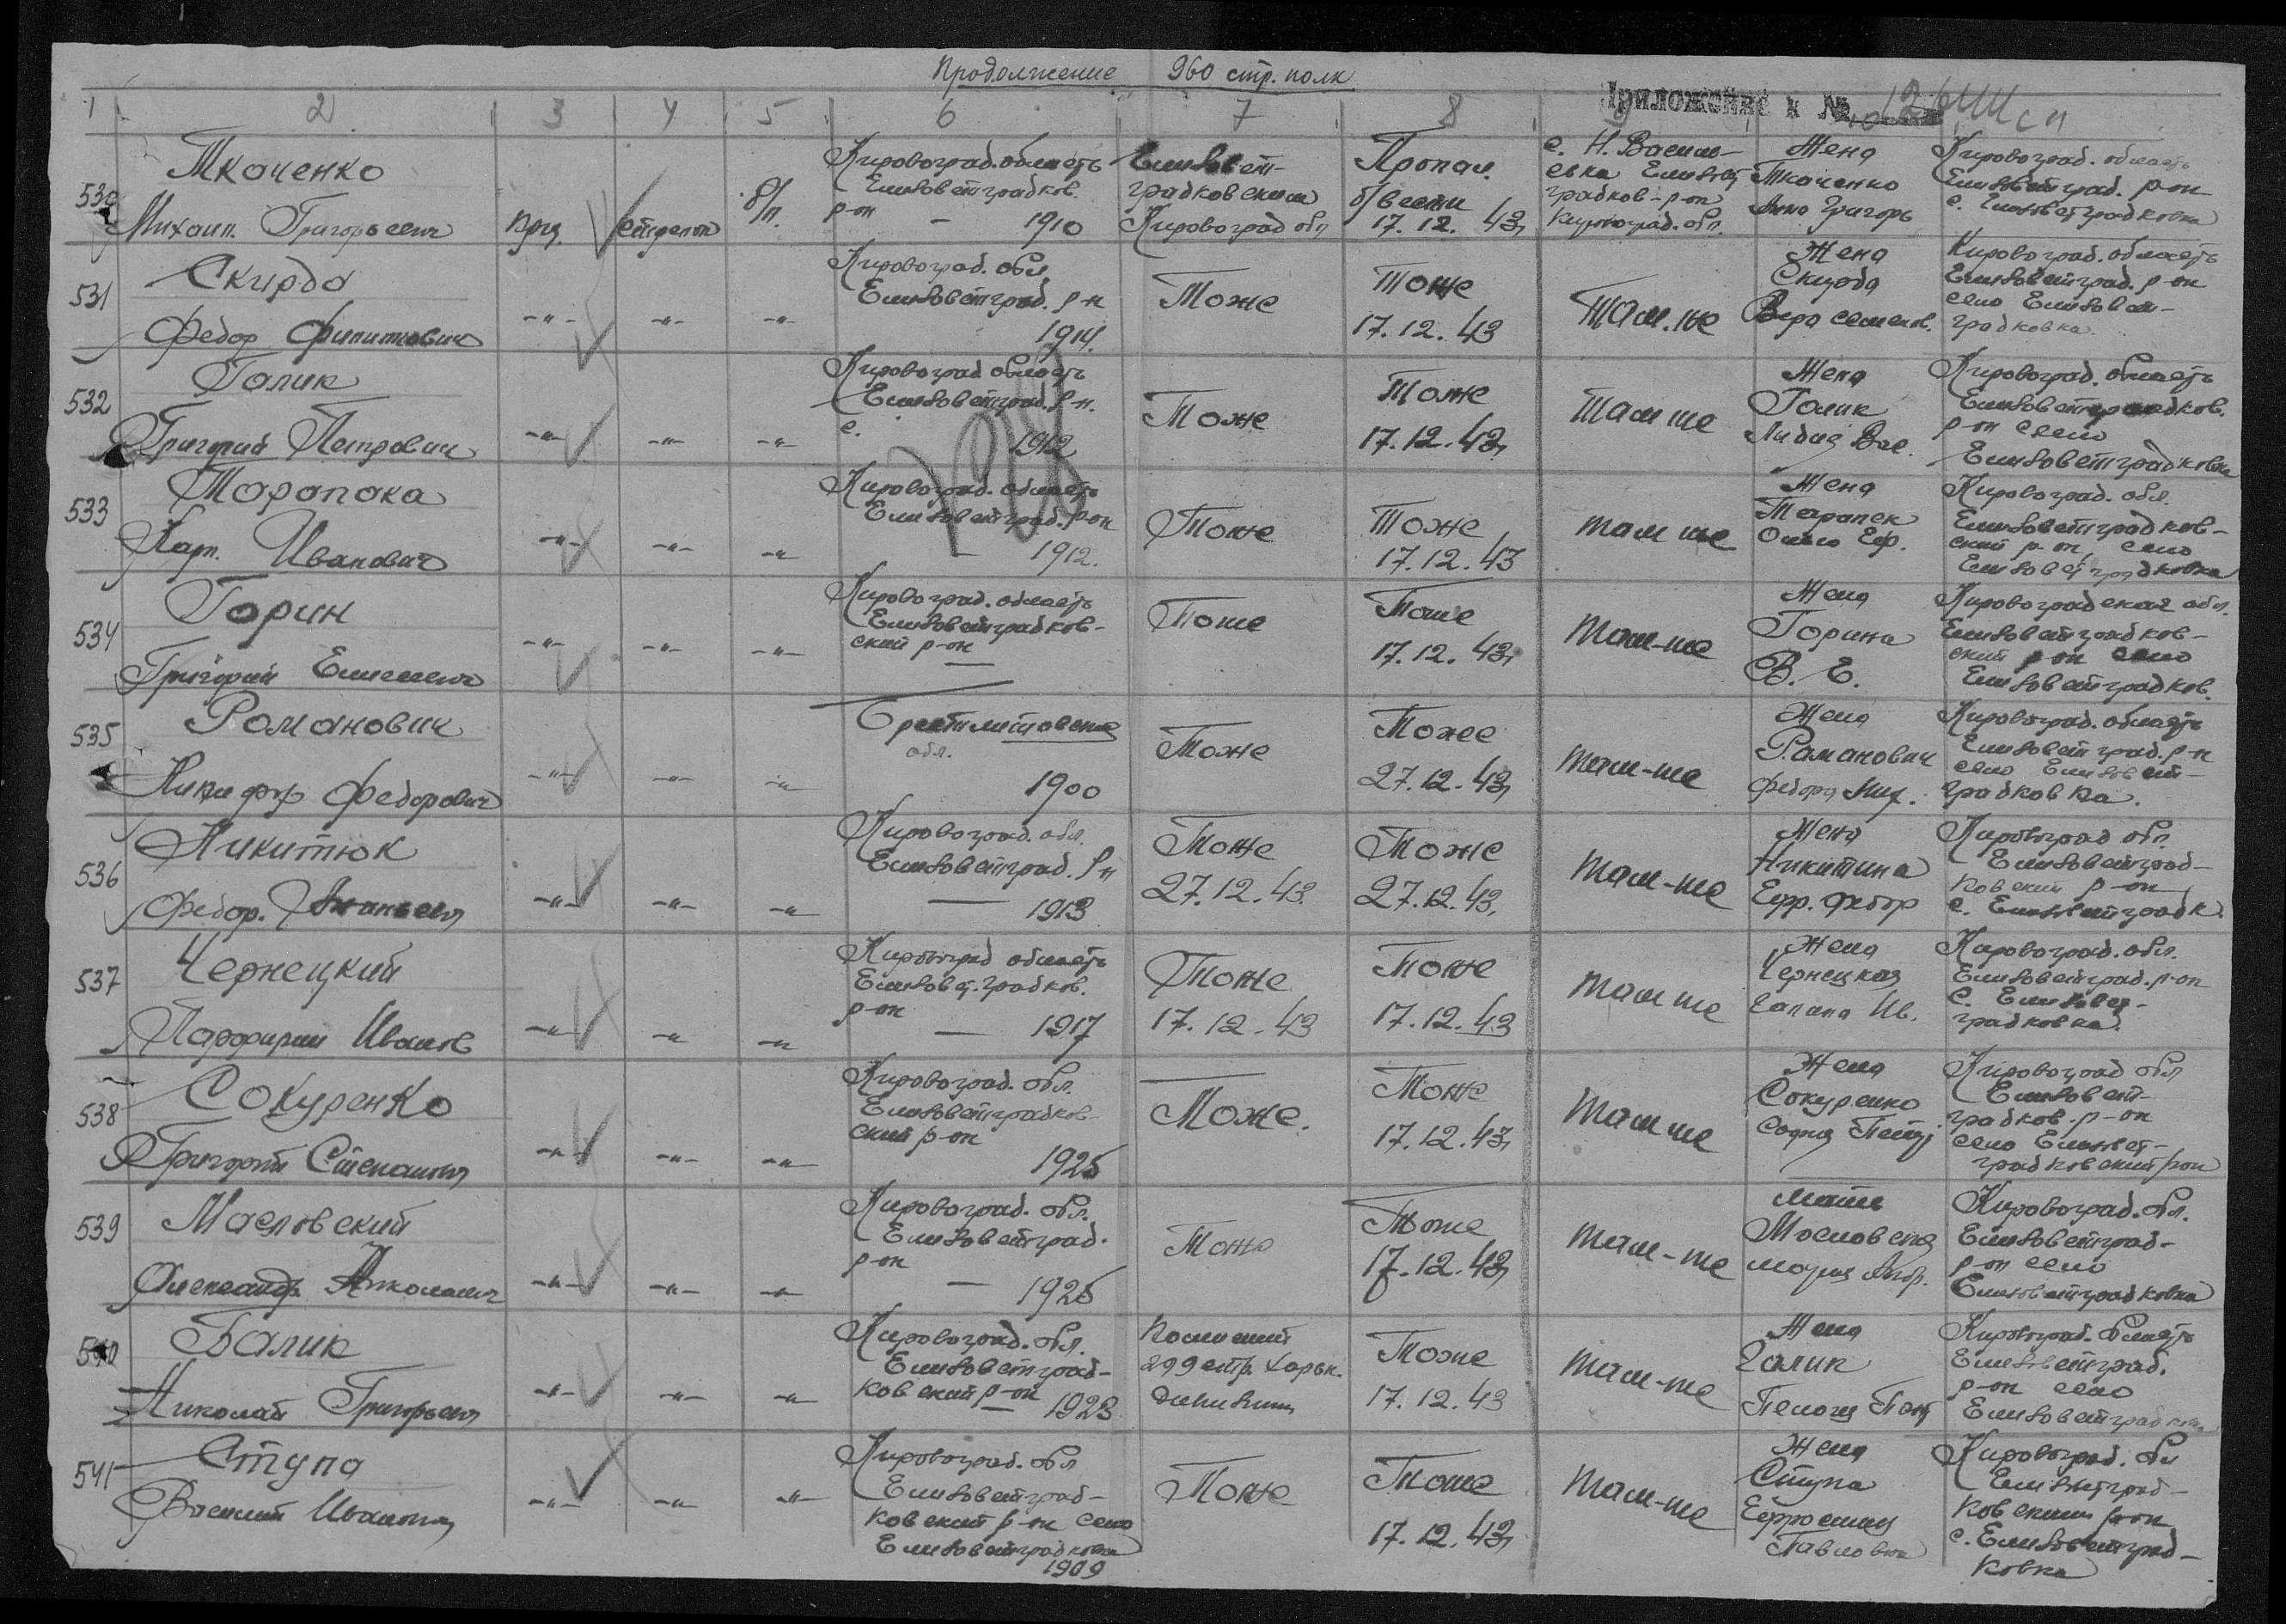 Продолжение 960 стр. полк
Приложение к №
1 2 3 4 5 6 7 8 9
530 Ткаченко
Михаил Григорьевич
стрелок
б/п.
Кировоград. область
Елизоветградков.
р-он — 1910
Елизовет-
градковским
Кировоград обл
Пропал
б/вести
17.12.43
с. Н. Василь-
евка Елизовет
градков-р-он
Кировоград. обл.
Жена
Ткаченко
Кировоград. область
Елизоветград. р-он
с. Елизоветградковка
531 Скирда
Федор Филиппович
-"- -"- -"-
Кировоград. обл.
Елизоветград. р-н
1914.
Тоже
Тоже
17.12.43
Там-же
Жена
Скирда
Вера Семенов.
Кировоград. область
Елизоветград. р-он
село Елизовет-
градковка
532 Галик
Григорий Петрович
-"- -"- -"-
Кировоград область
Елизоветград. р-н.
с. 1912
Тоже
Тоже
17.12.43
Там же
Жена
Галик
Лидия Вас.
Кировоград. область
Елизоветградков.
р-он село
Елизоветградковка
533 Тарапака
Карп. Иванович
-"- -"- -"-
Кировоград. область
Елизоветград. р-он
— 1912.
Тоже
Тоже
17.12.43
там же
Жена
Тарапак
Кировоград. обл.
Елизоветградков-
ский р-он, село
Елизоветградковка
534 Горин
Григорий Елисеевич
-"- -"- -"-
Кировоград. область
Елизоветградков-
ский р-он —
Тоже
Тоже
17.12.43
там-же
Жена
Горина
В. Е.
Кировоградская обл.
Елизоветградков-
ский р-он село
Елизоветградков.
535 Романович
Никифор Федорович
-"- -"- -"-
Брестлитовская
обл.
1900
Тоже
Тоже
27.12.43
там-же
Жена
Романович
Федора Мих.
Кировоград. область
Елизоветград. р-н
село Елизовет-
градковка.
536 Никитюк
Федор.
-"- -"- -"-
Кировоград. обл.
Елизоветград. р-н
— 1913
Тоже
27.12.43.
Тоже
27.12.43.
там-же
Жена
Никитина
Ефр. Федор
Кировоград обл.
Елизоветград-
ковский р-он
с. Елизоветградк.
537 Чернецкий
Порфирий Иванов
-"- -"- -"-
Кировоград область
Елизовет.градков.
р-он — 1917
Тоже
17.12.43
Тоже
17.12.43
там же
Жена
Чернецкая
Кировоград. обл.
Елизоветград. р-он
с. Елизовет-
градковка.
538 Сокуренко
Григорий Степанович
-"- -"- -"-
Кировоград. обл.
Елизоветградков-
ский р-он
1925
Тоже.
Тоже
17.12.43
там же
Жена
Сокуренко
Кировоград обл
Елизовет-
градков. р-он
село Елизовет-
градковский рон
539 Масловский
Александр Николаевич
-"- -"- -"-
Кировоград. обл.
Елизоветград.
р-он — 1925
Тоже
Тоже
17.12.43
там-же
мать
Масловская
Мария
Кировоград. обл.
Елизоветград-
р-он село
Елизоветградковка
540 Балик
Николай Григорьевич
-"- -"- -"-
Кировоград. обл.
Елизоветград-
ковский р-он 1923
299 стр. Харьк.
дивизии
Тоже
17.12.43
там-же
Жена
Галик
Кировоград. область
Елизоветград.
р-он село
Елизоветградков.
541 Ступа
Василий Иванович
-"- -"- -"-
Кировоград. обл
Елизоветград-
ковский р-он село
Елизоветградковка
1909
Тоже
Тоже
17.12.43
там-же
Жена
Ступа
Ефросиния
Павловна
Кировоград. обл
Елизоветград-
ковский р-он
с. Елизоветград-
ковка